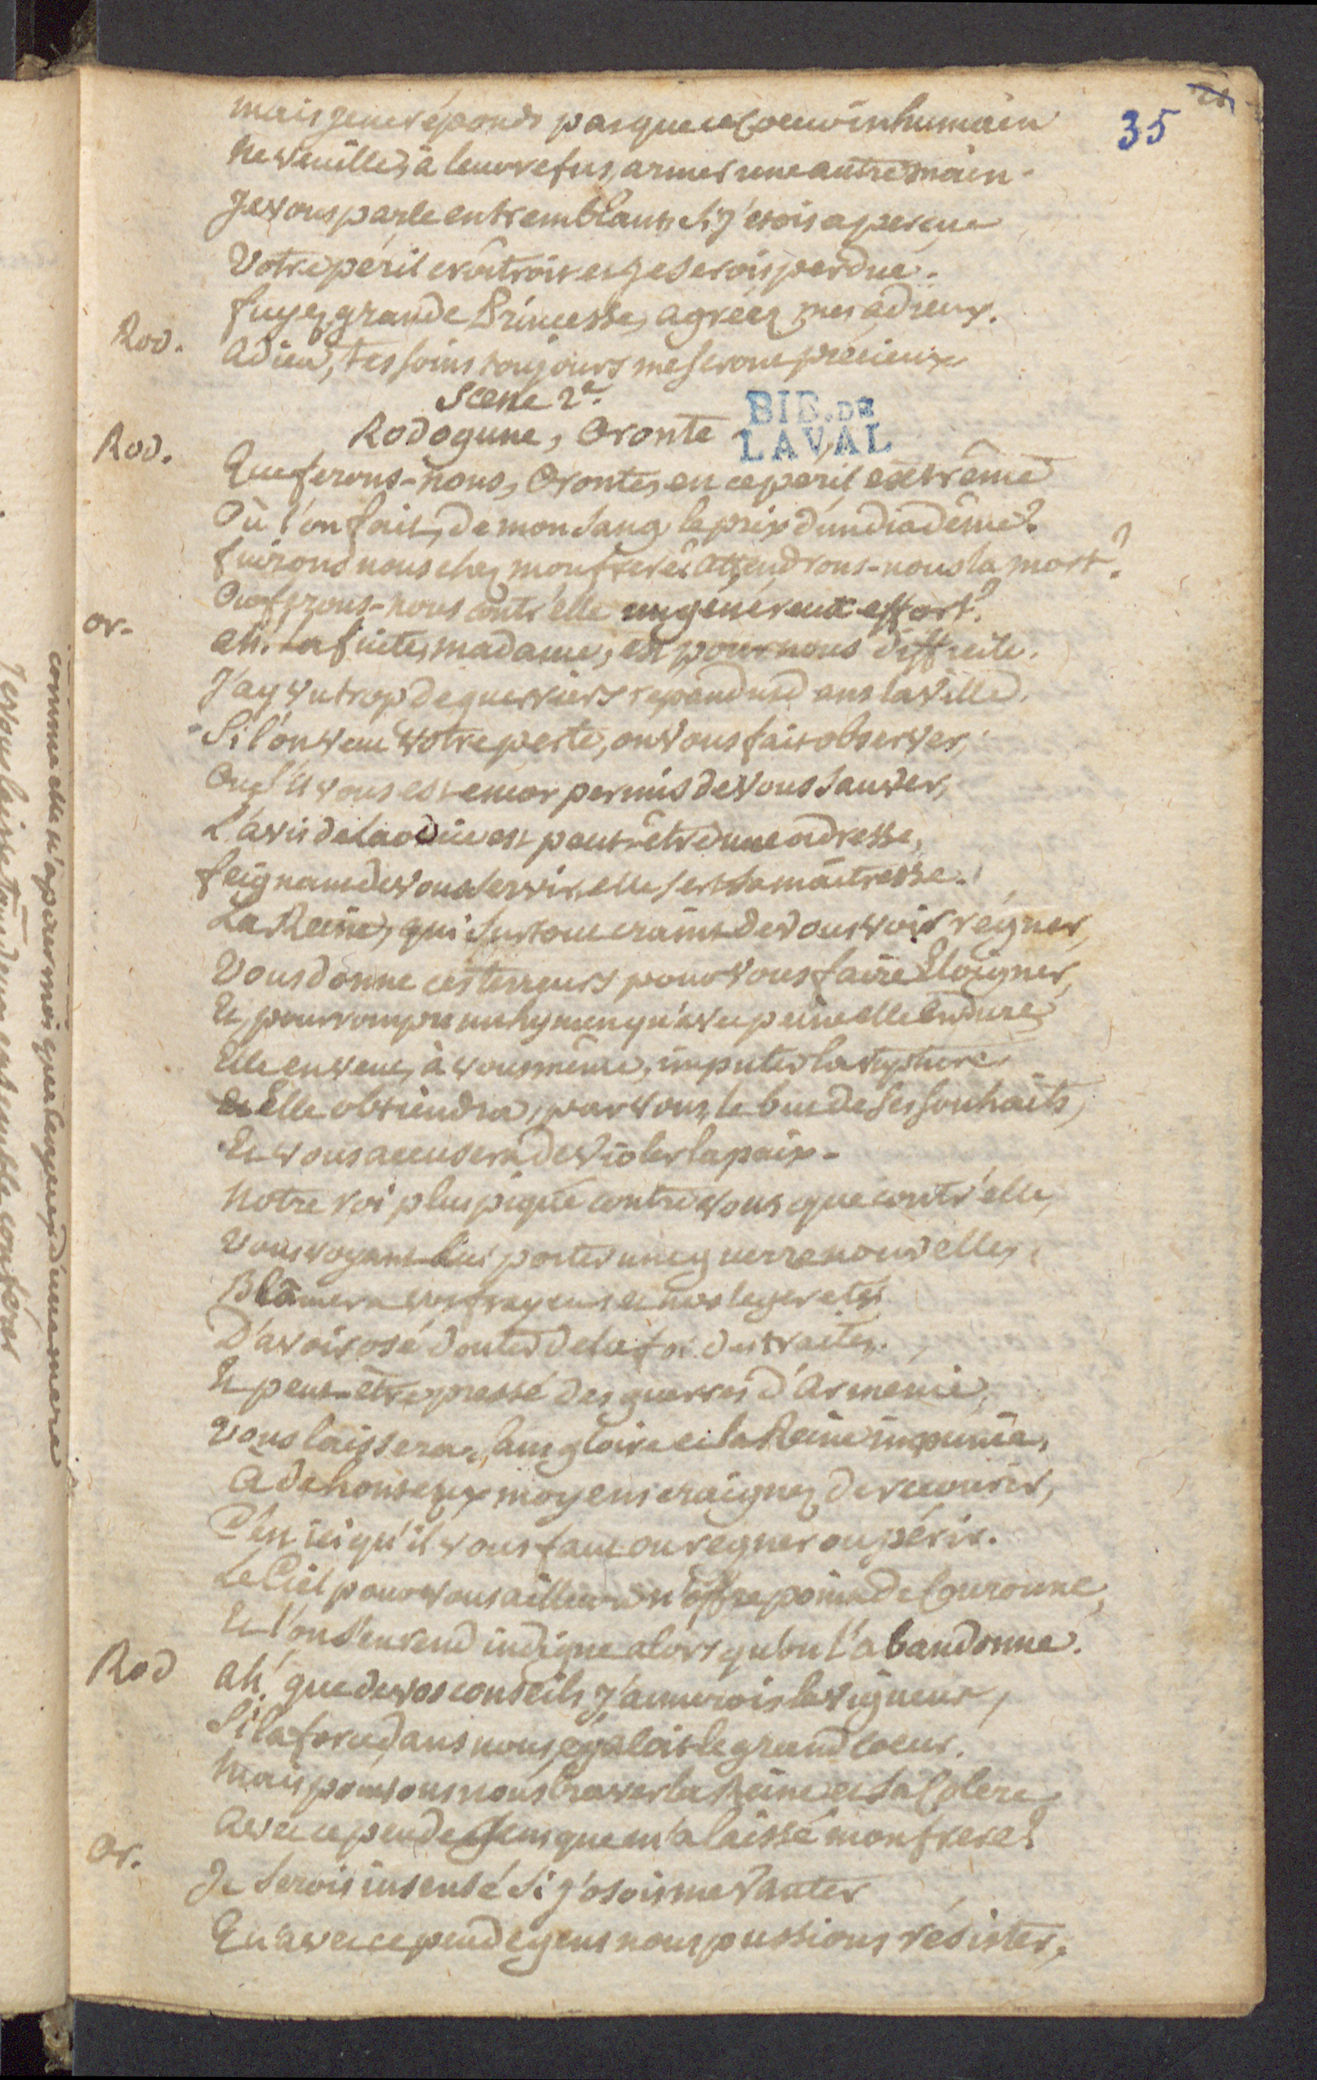 35
mais je ne réponds pas que ce Coeur inhumain
ne veuille, à leur refus, armer une autre main.
Je vous parle en tremblant si j'etois aperçue
Votre péril croîtroit et je serois perdue.
fuyez grande Princesse, agréez mes adieux.
Rod. Adieu, tes soins toujours me seront précieux
Scene 2e.
Rodogune, Oronte
BIB. DE LAVAL
Rod. Que ferons-nous, Oronte, en ce peril extrême
Où l'on fait, de mon sang le prix d'un diadême?
fuirons nous chez mon frere? Attendrons-nous la mort?
Ou ferons-nous contr'elle un généreux effort?
or. ah. La fuite, madame, est pour nous difficile.
J'ay vu trop de guerriers repandus dans la ville.
Si l'on veut votre perte, on vous fait observer,
Ou s'il vous est encor permis de vous sauver,
L'avis de Laodice est peut-être une adresse,
feignant de vous servir, elle sert sa maîtresse.
La Reine, qui surtout craint de vous voir régner,
Vous donne ces terreurs pour vous faire Eloigner,
Et, pour rompre un hymen qu'avec peine elle Endure
Elle en veut, à vous même, imputer la rupture
Elle obtiendra, par vous, le but de ses souhaits,
Et vous accusera de violer la paix.
Notre roi plus piqué contre vous que contr'elle,
Vous voyant lui porter une guerre nouvelle,
Blâmera vos frayeurs et nos legeretés
D'avoir osé douter de la foi des traités.
Et peut-être pressé des guerres d'Armenie,
Vous laissera, sans gloire et la Reine impunie,
A de honteux moyens craignez de recourir,
C'est ici qu'il vous faut ou regner ou périr.
Le Ciel pour vous ailleurs n'offre point de Couronne,
Et l'on s'en rend indigne alors qu'on l'abandonne.
Rod ah! que de vos conseils j'aimerois la vigueur,
Si la force, dans nous, égaloit le grand coeur.
Mais pouvons nous braver la Reine et sa Colere
Avec ce peu de gens que m'a laissé mon frere?
Or. Je serois insensé si j'osois me vanter
Qu'avec ce peu de gens nous pussions résister.